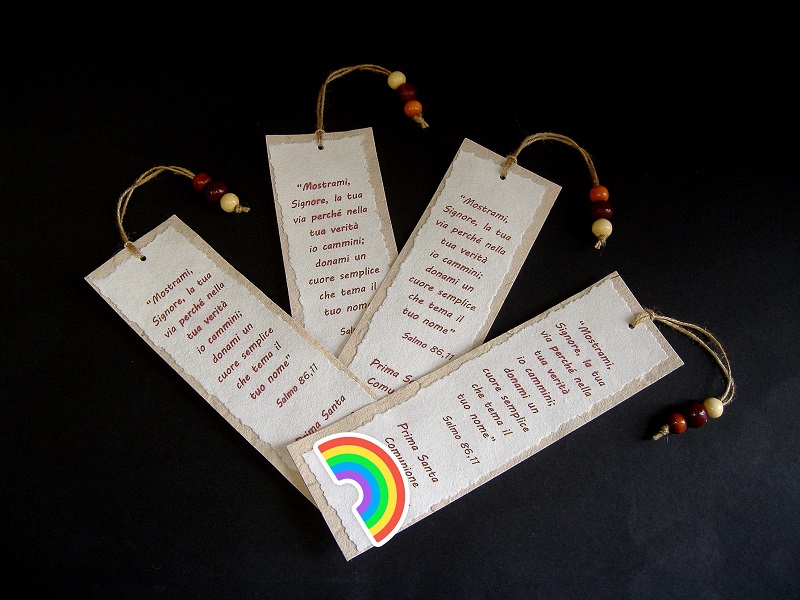 “Mostrami,
Signore, la tua
via perché nella
tua verità
io cammini;
donami un
cuore semplice
che tema il
tuo nome”
Salmo 86,11
Prima Santa
“Mostrami,
Signore, la tua
via perché nella
tua verità
io cammini;
donami un
cuore semplice
che tema il
tuo nome
Sal
“Mostrami,
Signore, la tua
via perché nella
tua verità
io cammini;
donami un
cuore semplice
che tema il
tuo nome”
Salmo 86,11
Prima Santa
Comu
“Mostrami,
Signore, la tua
via perché nella
tua verità
io cammini;
donami un
cuore semplice
che tema il
tuo nome”
Salmo 86,11
Prima Santa
Comunione